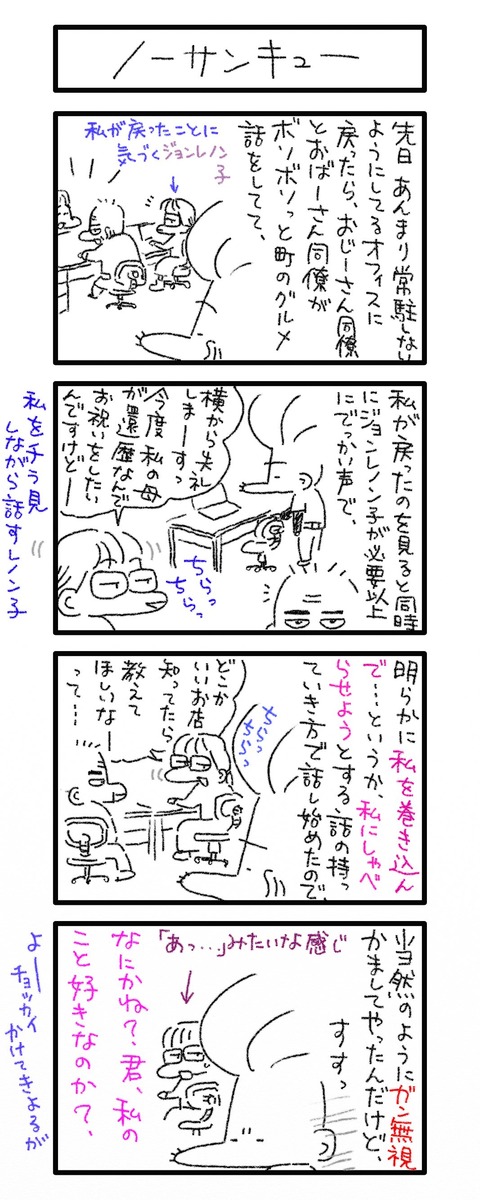 ノーサンキュー
先日あんまり常駐しない
ようにしてるオフィスに
戻ったら、おじーさん同僚
とおばーさん同僚が
ボソボソっと町のグルメ
話をしてて、
私が戻ったことに
気づくジョンレノン
子
私が戻ったのを見ると同時
にジョンレノン子が必要以上
にでっかい声で、
横から失礼
しまーすっ
今度私の母
が還暦なんで
お祝いをしたい
んですけどー
ちらっ
ちらっ
私をチラ見
しながら話すレノン子
明らかに私を巻き込ん
で…というか、私にしゃべ
らせようとする話の持っ
ていき方で話し始めたので
ちらっ
ちらっ
どこか
いいお店
知ってたら
教えて
ほしいなー
って…
当然のようにガン無視
かましてやったんだけど、
すすっ
「あっ…」みたいな感じ
なにかね?、君、私の
こと好きなのか?、
よーチョッカイ
かけてきよるが